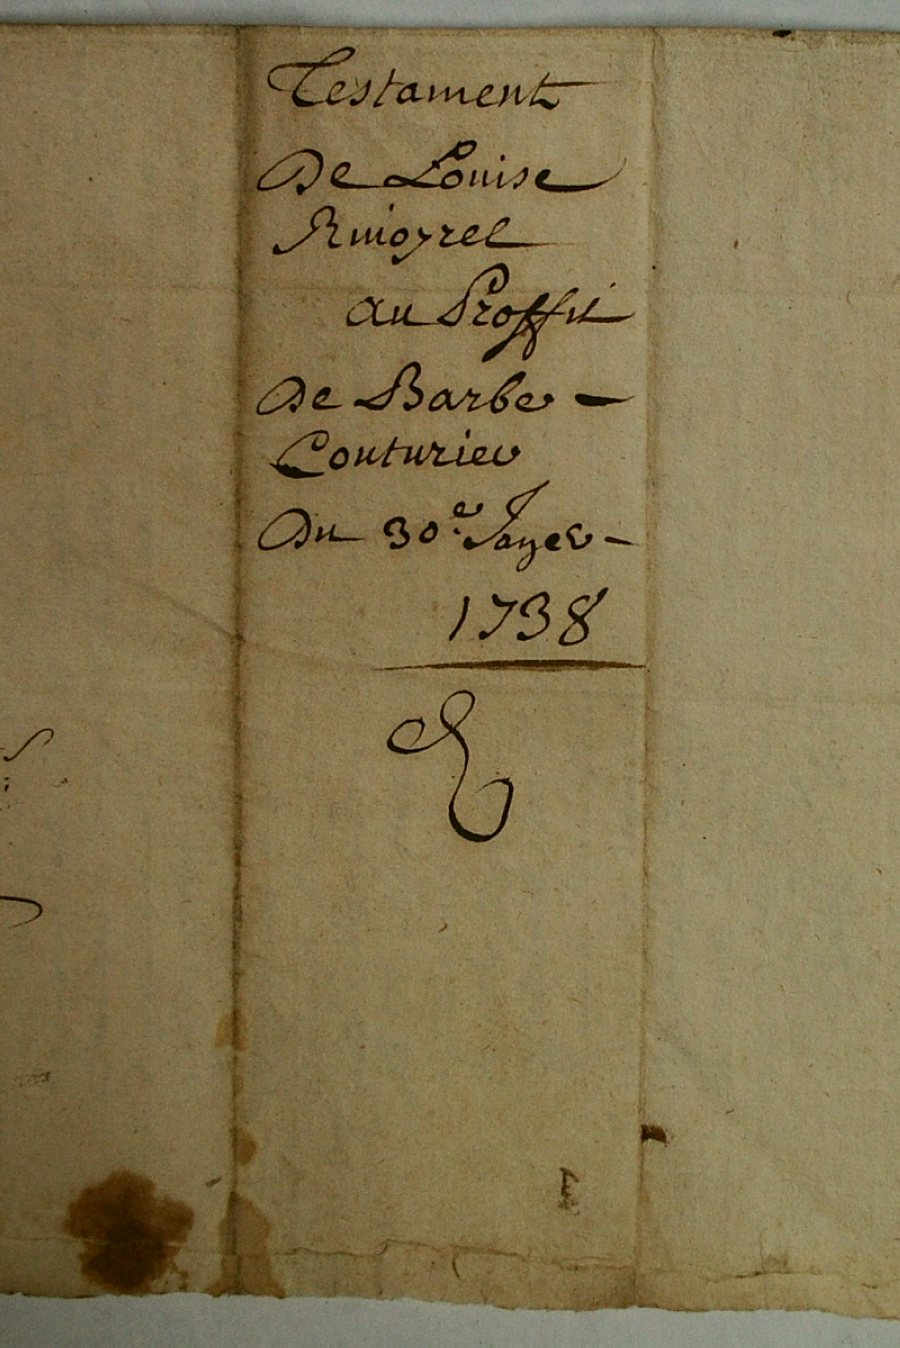 Testament
De Louise
Ruioyrel
au Proffit
De Barbe -
Couturier
Du 30.e Janer -
1738